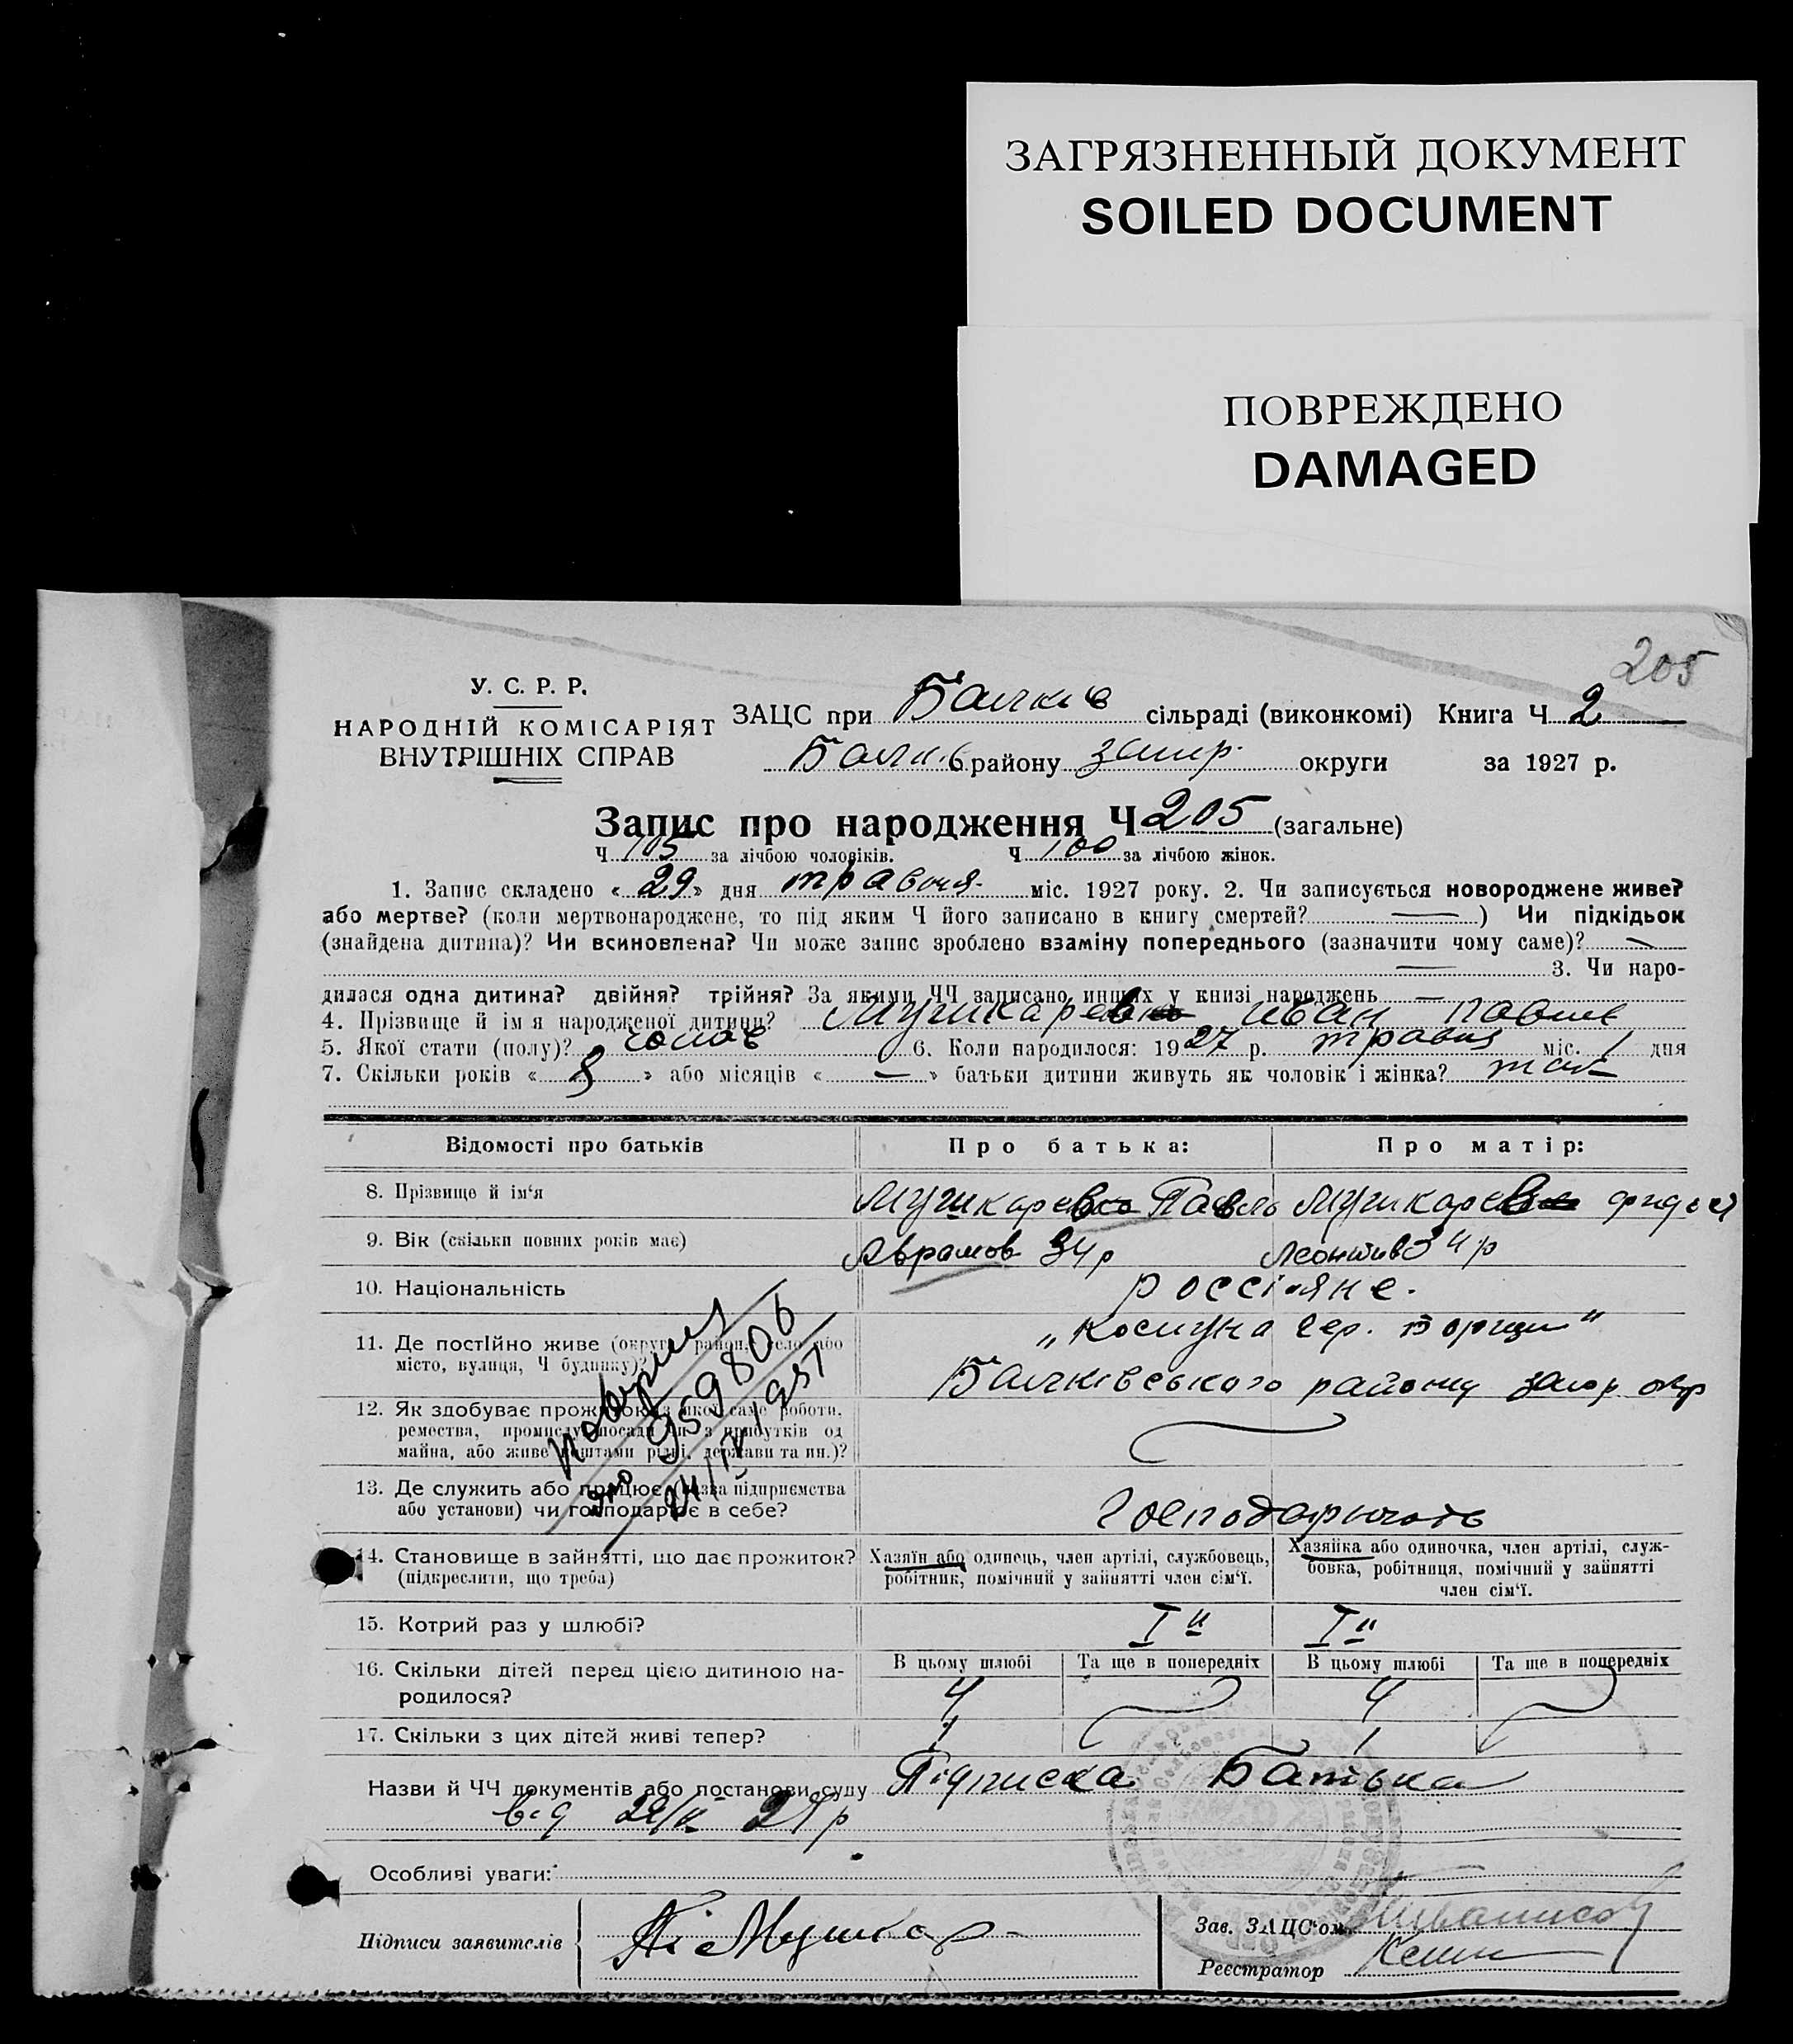 ЗАГРЯЗНЕННЫЙ ДОКУМЕНТ
SOILED DOCUMENT
ПОВРЕЖДЕНО
DAMAGED
205
У. С. Р. Р.
НАРОДНІЙ КОМІСАРІЯТ
ВНУТРІШНІХ СПРАВ
ЗАЦС при Балків сільраді (виконкомі) Книга Ч 2
Балків району запр. округи за 1927 р.
Запис про народження Ч 205 (загальне)
Ч 105 за лічбою чоловіків. Ч 100 за лічбою жінок.
1. Запис складено « 29 » дня травня міс. 1927 року. 2. Чи записується новороджене живе?
або мертве? (коли мертвонароджене, то під яким Ч його записано в книгу смертей? — ) Чи підкідьок
(знайдена дитина)? Чи всиновлена? Чи може запис зроблено взаміну попереднього (зазначити чому саме)? —
— 3. Чи наро-
дилася одна дитина? двійня? трійня? За якими ЧЧ записано инших у книзі народжень —
4. Прізвище й ім я народженої дитини? Мушкарев Иван Павлов
5. Якої стати (полу)? чолов 6. Коли народилося: 1927 р. травня міс. 1 дня
7. Скільки років « 8 » або місяців « — » батьки дитини живуть як чоловік і жінка? так
Відомості про батьків Про батька: Про матір:
8. Прізвище й ім‘я Мушкарев Павло Мушкарев
9. Вік (скільки повних років має) Аврамов 34 р Леонтив 34 р
10. Національність россіяне.
11. Де постійно живе (округа, район, село або
місто, вулиця, Ч будинку)? „Комуна Чер. Борци“
Балківського району запор. окр
12. Як здобуває прожиток (з якої саме роботи,
ремества, промислу, посади чи з прибутків од
майна, або живе коштами рідні, держави та ин.)?
13. Де служить або працює (назва підприємства
або установи) чи господарює в себе? Господарюють
повторнея
959806
24/IV 1957
14. Становище в зайнятті, що дає прожиток?
(підкреслити, що треба)
Хазяїн або одинець, член артілі, службовець,
робітник, помічний у зайнятті член сім‘ї.
Хазяйка або одиночка, член артілі, служ-
бовка, робітниця, помічний у зайнятті
член сім‘ї.
15. Котрий раз у шлюбі? І й І й
16. Скільки дітей перед цією дитиною на-
родилося?
В цьому шлюбі Та ще в попередніх В цьому шлюбі Та ще в попередніх
4 4
17. Скільки з цих дітей живі тепер? 1 1
Назви й ЧЧ документів або постанови суду Підписка Батька
від 29/V 27 р
Особливі уваги:
Підписи заявителів Мушкар
Зав. ЗАЦС‘ом
Реєстратор